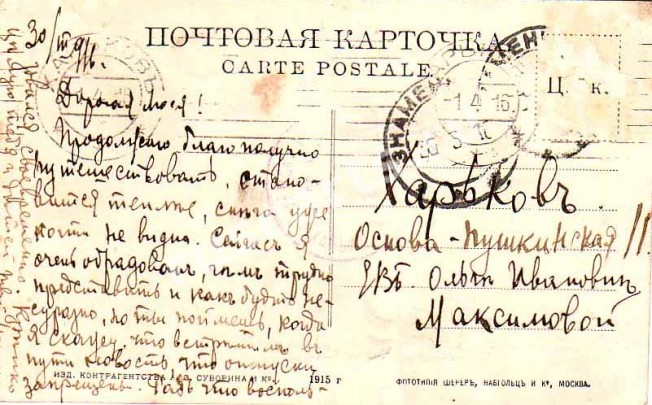 ПОЧТОВАЯ КАРТОЧКА
CARTE POSTALE.
30/III 916.
Дорогая моя!
Продолжаю благополучно
путешествовать, стано-
вится теплѣе, снѣга уже
почти не видно. Сейчасъ я
очень обрадованъ, чѣмъ трудно
представить и какъ будто не-
суразно, но ты поймешь, когда
я скажу, что встрѣтилъ въ
пути новость, что отпуски
запрещены. Радъ что восполь-
зовался своевременно. Крѣпко
цѣлую тебя и дѣтей
ЗНАМЕН
-1 4 16
30 3 16
Ц. к.
Харьковъ
Основа-Пушкинская 11
ЕВБ. Ольгѣ Ивановнѣ
Максимовой
ИЗД. КОНТРАГЕНТСТВА А.С. СУВОРИНА И Ко. 1915 г
ФОТОТИПІЯ ШЕРЕРЪ, НАБГОЛЬЦЪ И Ко, МОСКВА.